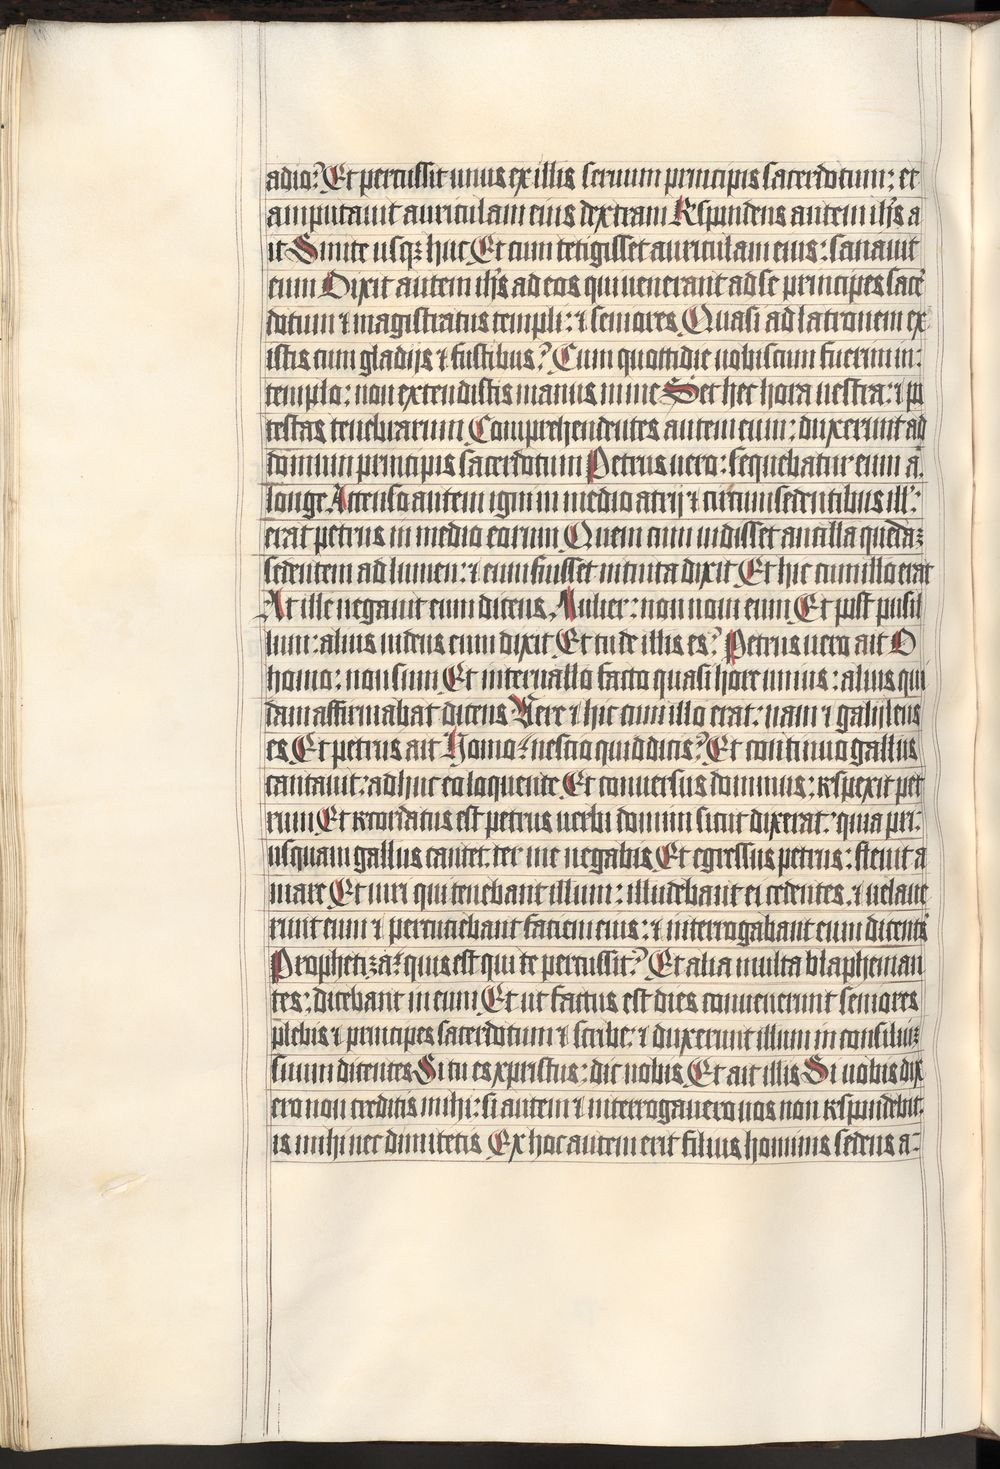 adio? Et percussit unus ex illis seruum principis sacerdotum: et
amputauit auriculam eius dexteram Respondens autem ihs a
it Sinite usqz huc Et cum tetigisset auriculam eius: sanauit
eum Dixit autem ihs ad eos qui uenerant ad se principes sacer
dotum ⁊ magistratus templi: ⁊ seniores Quasi ad latronem ex
istis cum gladijs ⁊ fustibus? Cum quottidie uobiscum fuerim in:
templo: non extendistis manus in me Set hec hora uestra: ⁊ po
testas tenebrarum Comprehendentes autem eum: duxerunt ad
domum principis sacerdotum Petrus uero: sequebatur eum a
longe. Accenso autem igni in medio atrij ⁊ circumsedentibus ill':
erat petrus in medio eorum Quem cum uidisset ancilla quedaz
sedentem ad lumen: ⁊ eum fuisset intuita dixit Et hic cum illo erat
At ille negauit eum dicens. Mulier: non noui eum Et post pusil
lum: alius uidens eum dixit Et tu de illis es? Petrus uero ait O
homo: non sum Et interuallo facto quasi hore unius: alius qui
dam affirmabat dicens Vere ⁊ hic cum illo erat: nam ⁊ galileus
es Et petrus ait Homo: nescio quid dicis? Et continuo gallus
cantauit: adhuc eo loquente Et conuersus dominus: respexit pet
rum Et recordatus est petrus uerbi domini sicut dixerat: quia pri:
usquam gallus cantet: ter me negabis Et egressus petrus: fleuit a
mare Et uiri qui tenebant illum: illudebant ei cedentes. ⁊ uelaue
runt eum ⁊ percutiebant faciem eius: ⁊ interrogabant eum dicentes
Prophetiza: quis est qui te percussit? Et alia multa blapheman
tes: dicebant in eum Et ut factus est dies conuenerunt seniores
plebis ⁊ principes sacerdotum ⁊ scribe: ⁊ duxerunt illum in consiliuz
suum dicentes Si tu es xpristus: dic nobis Et ait illis Si uobis dix
ero non creditis mihi: si autem ⁊ interrogauero uos non respondebit:
is mihi nec dimitetis Ex hoc autem erit filius hominis sedens a: